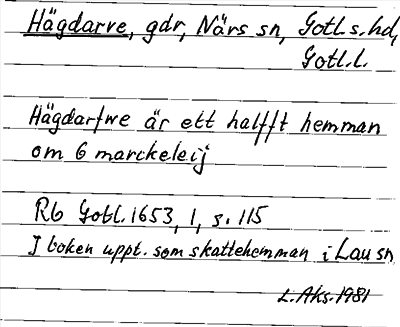 Hägdarve, gdr, Närs sn, Gotl. s. hd,
Gotl. l.
Hägdarfwe är ett halfft hemman
om 6 marckeleij
Rb Gotl. 1653, 1, s. 115
I boken uppt. som skattehemman i Lau sn
L. Aks. 1981